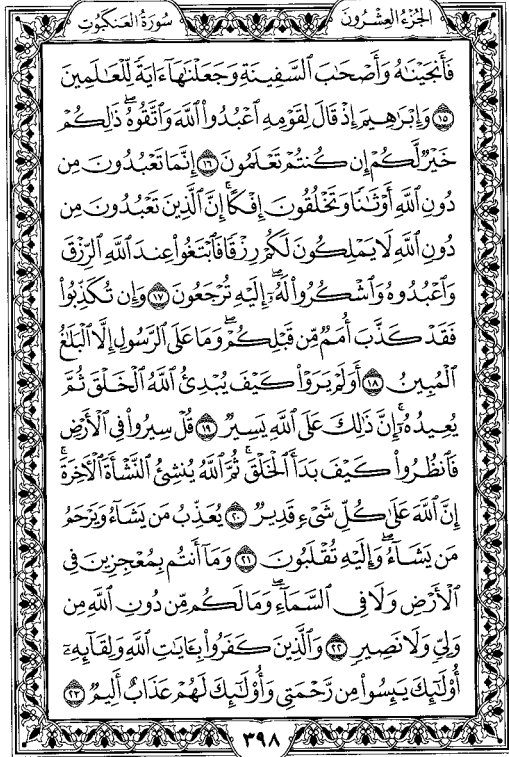 الجزء العشرون
سورة العنكبوت
فَأَنجَيْنَـٰهُ وَأَصْحَـٰبَ ٱلسَّفِينَةِ وَجَعَلْنَـٰهَآ ءَايَةً لِّلْعَـٰلَمِينَ
١٥ وَإِبْرَٰهِيمَ إِذْ قَالَ لِقَوْمِهِ ٱعْبُدُوا۟ ٱللَّهَ وَٱتَّقُوهُ ۖ ذَٰلِكُمْ
خَيْرٌ لَّكُمْ إِن كُنتُمْ تَعْلَمُونَ ١٦ إِنَّمَا تَعْبُدُونَ مِن
دُونِ ٱللَّهِ أَوْثَـٰنًا وَتَخْلُقُونَ إِفْكًا ۚ إِنَّ ٱلَّذِينَ تَعْبُدُونَ مِن
دُونِ ٱللَّهِ لَا يَمْلِكُونَ لَكُمْ رِزْقًا فَٱبْتَغُوا۟ عِندَ ٱللَّهِ ٱلرِّزْقَ
وَٱعْبُدُوهُ وَٱشْكُرُوا۟ لَهُۥٓ ۖ إِلَيْهِ تُرْجَعُونَ ١٧ وَإِن تُكَذِّبُوا۟
فَقَدْ كَذَّبَ أُمَمٌ مِّن قَبْلِكُمْ ۖ وَمَا عَلَى ٱلرَّسُولِ إِلَّا ٱلْبَلَـٰغُ
ٱلْمُبِينُ ١٨ أَوَلَمْ يَرَوْا۟ كَيْفَ يُبْدِئُ ٱللَّهُ ٱلْخَلْقَ ثُمَّ
يُعِيدُهُۥٓ ۚ إِنَّ ذَٰلِكَ عَلَى ٱللَّهِ يَسِيرٌ ١٩ قُلْ سِيرُوا۟ فِى ٱلْأَرْضِ
فَٱنظُرُوا۟ كَيْفَ بَدَأَ ٱلْخَلْقَ ۚ ثُمَّ ٱللَّهُ يُنشِئُ ٱلنَّشْأَةَ ٱلْـَٔاخِرَةَ ۚ
إِنَّ ٱللَّهَ عَلَىٰ كُلِّ شَىْءٍ قَدِيرٌ ٢٠ يُعَذِّبُ مَن يَشَآءُ وَيَرْحَمُ
مَن يَشَآءُ ۖ وَإِلَيْهِ تُقْلَبُونَ ٢١ وَمَآ أَنتُم بِمُعْجِزِينَ فِى
ٱلْأَرْضِ وَلَا فِى ٱلسَّمَآءِ ۖ وَمَا لَكُم مِّن دُونِ ٱللَّهِ مِن
وَلِىٍّ وَلَا نَصِيرٍ ٢٢ وَٱلَّذِينَ كَفَرُوا۟ بِـَٔايَـٰتِ ٱللَّهِ وَلِقَآئِهِۦٓ
أُو۟لَـٰٓئِكَ يَئِسُوا۟ مِن رَّحْمَتِى وَأُو۟لَـٰٓئِكَ لَهُمْ عَذَابٌ أَلِيمٌ ٢٣
٣٩٨